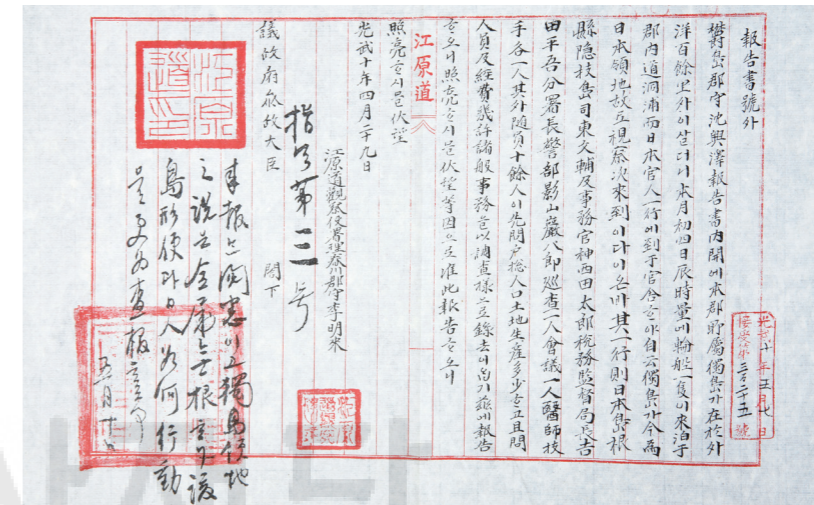 報告書號外
鬱島郡守沈興澤報告書內開에本郡所屬獨島가在於外
洋百餘里外이살더니本月初四日辰時量에輪船一隻이來泊于
郡內道洞浦而日本官人一行에到于官舍ᄒᆞ야自云獨島가今為
日本領地故로視察次來到이다이온바其一行則日本島根
縣隐技島司東文輔及事務官神西田太郎稅務監督局長吉
田平吾分署長警部影山巖八郎巡查一人會議一人醫師技
手各一人其外随員十餘人이先問戶捴人口土地生産多少ᄒᆞ고且問
人員及經費幾許諸般事務를以調査樣으로錄去이ᄋᆞᆸ기玆에報告
ᄒᆞ오니照亮ᄒᆞ시믈伏望等因으로准此報告ᄒᆞ오니
照亮ᄒᆞ시믈伏望
江原道
光武十年四月二十九日
江原道觀察使署理春川郡守李明來
議政府參政大臣 閣下
光武十年五月七日
接受第三百二十五號
指令第三号
來報는閱悉이고獨島領地
之說은全屬無根ᄒᆞ나該
島形便과日人如何行動
을更為查報ᄒᆞᆯ事
五月二十日
江原
道印